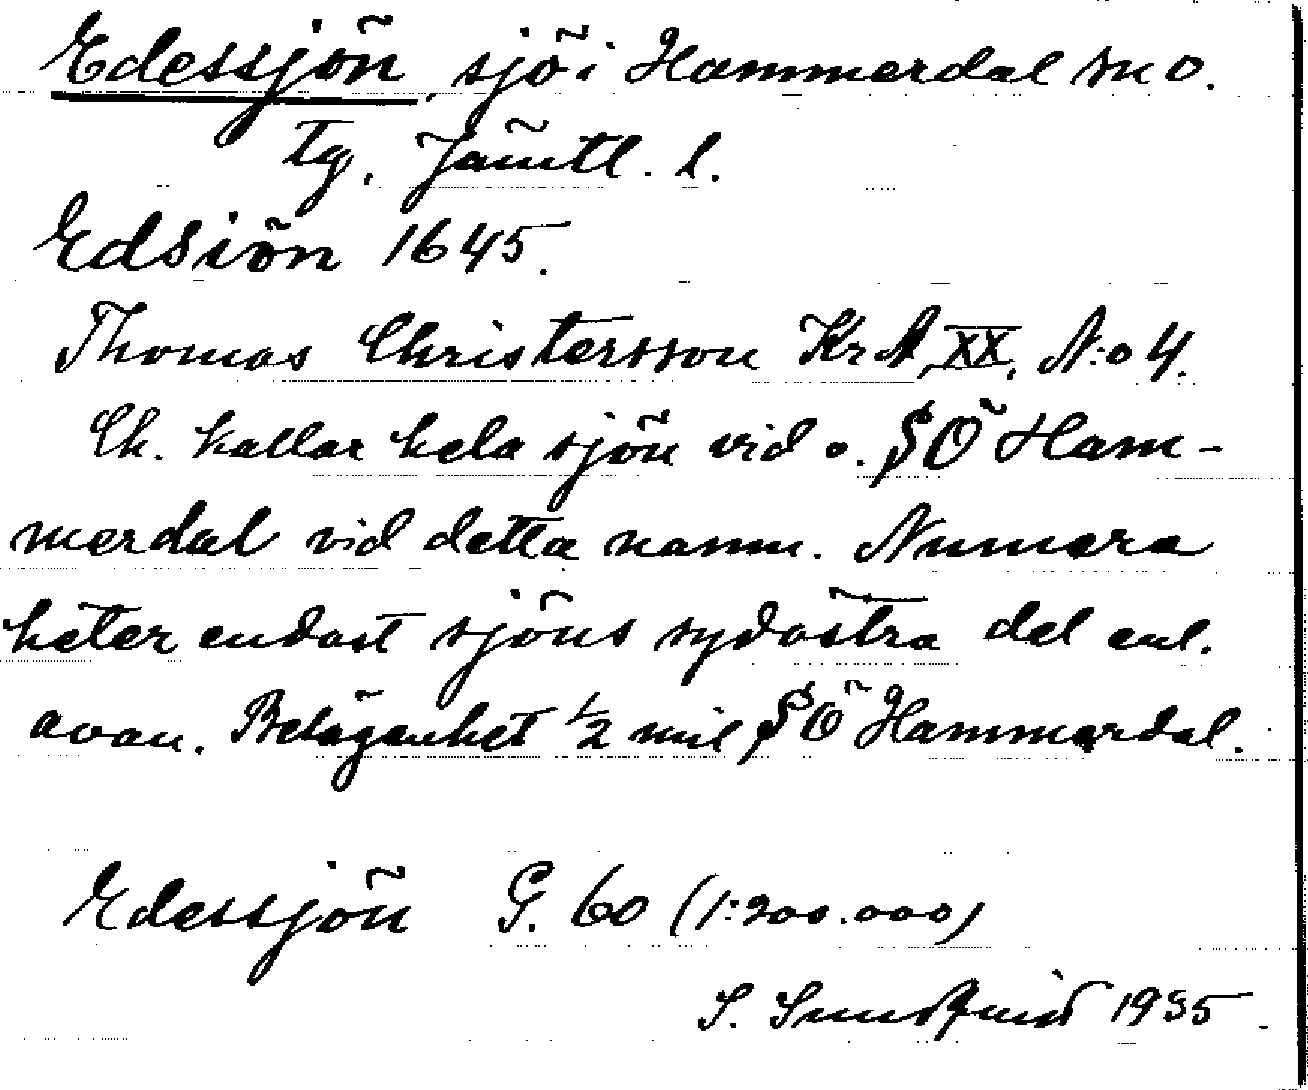 Edessjön, sjö i Hammerdal sn o.
tg. Jämtl. l.
Edsiön 1645.
Thomas Christersson KrA, XX, N:o 4.
Ch. kallar hela sjön vid o. SÖ Ham-
merdal vid detta namn. Numera
heter endast sjöns sydöstra del enl.
ovan. Belägenhet 1/2 mil SÖ Hammerdal.
Edessjön G. 60 (1:200.000)
S. Sundquist 1935